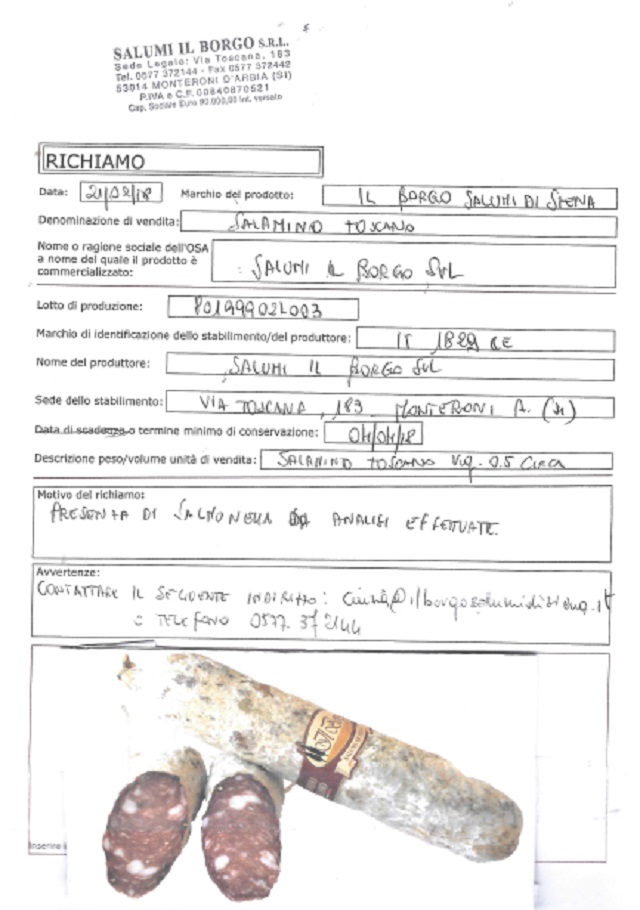 SALUMI IL BORGO S.R.L.
Sede Legale: Via Toscana, 183
Tel. 0577 372144 - Fax 0577 372442
53014 MONTERONI D'ARBIA (SI)
P.IVA e C.F. 00840870521
Cap. Sociale Euro 90.000,00 int. versato
RICHIAMO
Data: 21/02/18 Marchio del prodotto: IL BORGO SALUMI DI SIENA
Denominazione di vendita: SALAMINO TOSCANO
Nome o ragione sociale dell'OSA
a nome del quale il prodotto è
commercializzato: SALUMI IL BORGO SRL
Lotto di produzione: 801999021003
Marchio di identificazione dello stabilimento/del produttore: IT 1829 CE
Nome del produttore: SALUMI IL BORGO SRL
Sede dello stabilimento: VIA TOSCANA, 183 MONTERONI A. (SI)
Data di scadenza o termine minimo di conservazione: 04/04/18
Descrizione peso/volume unità di vendita: SALAMINO TOSCANO 0.5 CIRCA
Motivo del richiamo:
PRESENZA DI SALMONELLA DA ANALISI EFFETTUATE.
Avvertenze:
CONTATTARE IL SEGUENTE INDIRIZZO: @ilborgosalumidisiena.it
O TELEFONO 0577. 372144
Inserire